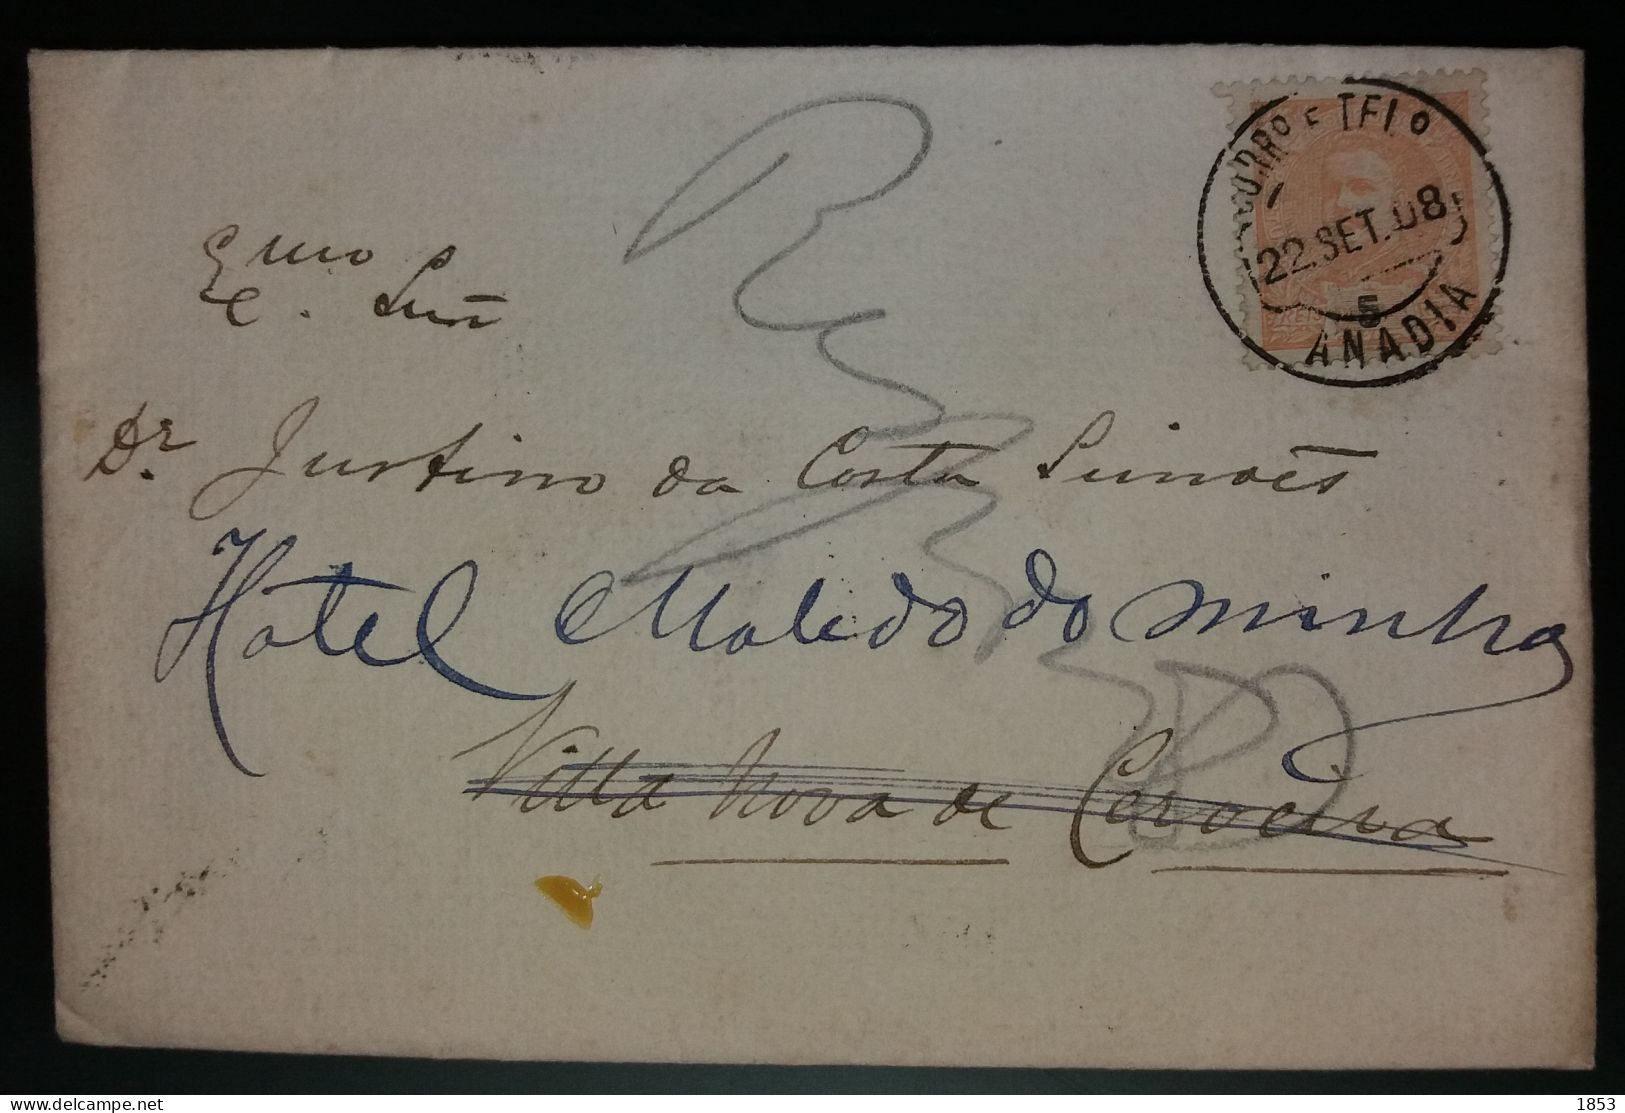 CORRO E TELO
22.SET.08
5
ANADIA
Exmo
Snr
Dr. Justino da Costa Simões
Hotel Moledo do Minho
Villa Nova de Cerveira
delcampe.net
1853